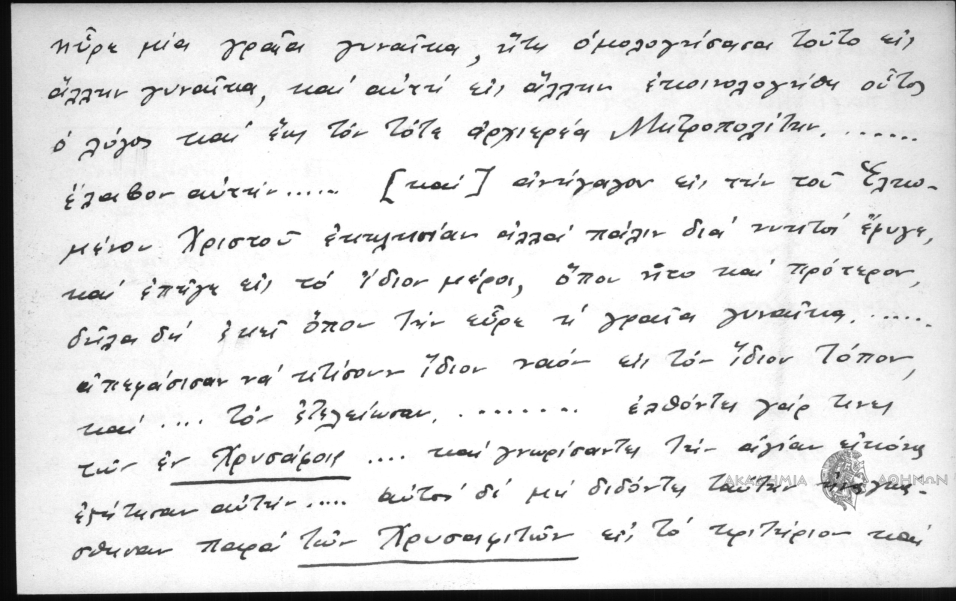 ηὗρε μία γραῖα γυναῖκα, ἥτις ὁμολογήσασα τοῦτο εἰς
ἄλλην γυναῖκα, καί αὐτή εἰς ἄλλην ἐκοινολογήθη οὗτος
ὁ λόγος καί ἕως τόν τότε ἀρχιερέα Μητροπολίτην.......
ἔλαβον αὐτήν..... [καί] ἀνήγαγον εἰς τήν τοῦ Ἑλκο-
μένου Χριστοῦ ἐκκλησίαν ἀλλά πάλιν διά νυκτός ἔφυγε,
καί ἐπῆγε εἰς τό ἴδιον μέρος, ὅπου ἦτο καί πρότερον,
δηλαδή ἐκεῖ ὅπου τήν εὗρε ἡ γραῖα γυναῖκα.......
ἀπεφάσισαν νά κτίσουν ἴδιον ναόν εἰς τόν ἴδιον τόπον,
καί .... τόν ἐτελείωσαν......... ἐλθόντες γάρ τινες
τῶν ἐν Χρυσάφοις .... καί γνωρίσαντες τήν ἁγίαν εἰκόνα
ἐζήτησαν αὐτήν.... αὐτοί δέ μή διδόντες ταύτην ἠναγκά-
σθησαν παρά τῶν Χρυσαφιτῶν εἰς τό κριτήριον καί
ΑΚΑΔΗΜΙΑ ΑΘΗΝΩΝ